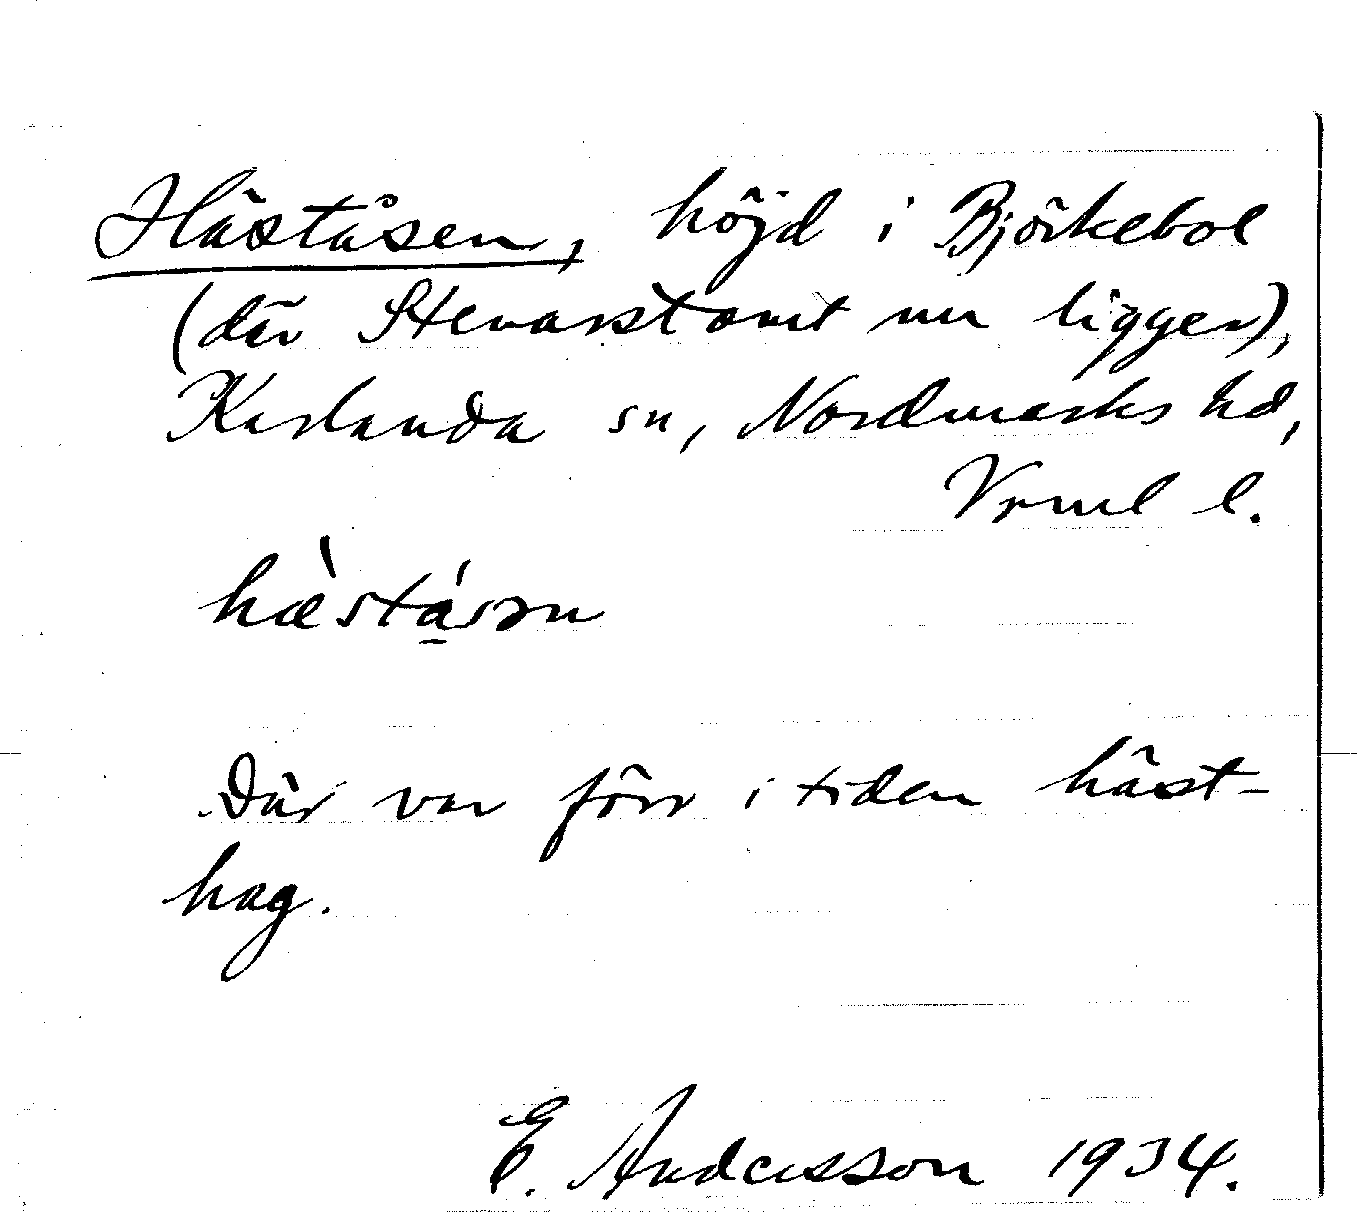 Häståsen, höjd i Björkebol
(där Stenarstomt nu ligger),
Karlanda sn, Nordmarks hd,
Vrml l.
hæ̀stá̠sən
Där var förr i tiden häst-
hag.
E. Andersson 1934.